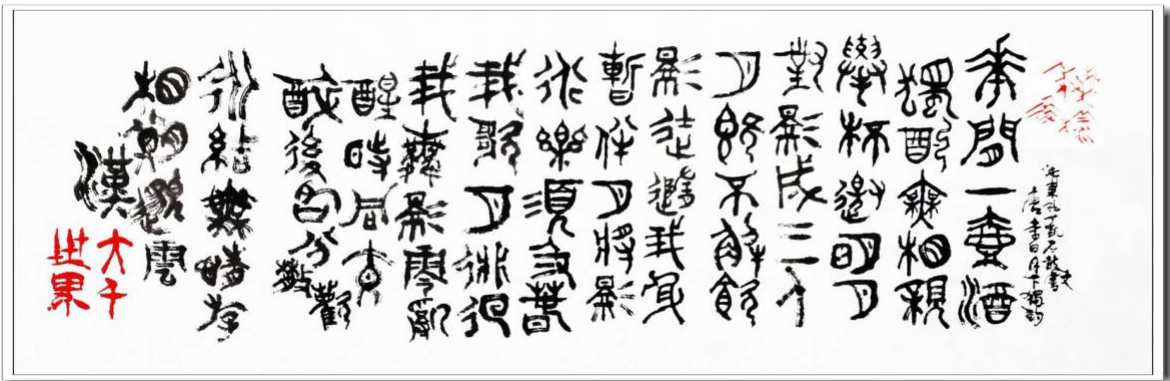 李白月下獨酌
華間一壺酒
獨酌無相親
舉杯邀明月
對影成三人
月既不解飲
影徒隨我身
暫伴月將影
行樂須及春
我歌月徘徊
我舞影零亂
醒時同交歡
醉後各分散
永結無情遊
相期邈雲
漢
大千
世界